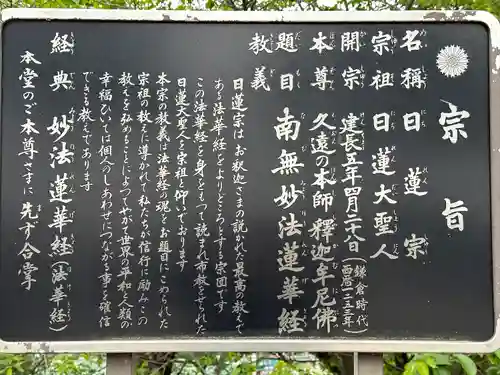 宗旨
名稱 日蓮宗
宗祖 日蓮大聖人
開宗 建長五年四月二十八日(鎌倉時代 西暦一二五三年)
本尊 久遠の本師釋迦牟尼佛
題目 南無妙法蓮華経
教義
日蓮宗はお釈迦さまの説かれた最高の教えで
ある法華経をよりどころとする宗団です
この法華経を身をもって読まれ布教せられた
日蓮大聖人を宗祖と仰いでおります
本宗の教義は法華経の魂をお題目にこめられた
宗祖の教えに導かれて私たちが信行に励みこの
教えを弘めることによってやがて世界の平和と人類の
幸福ひいては個人のしあわせにつながる事を確信
できる教えであります
経典 妙法蓮華経(法華経)
本堂のご本尊さまに先ず合掌